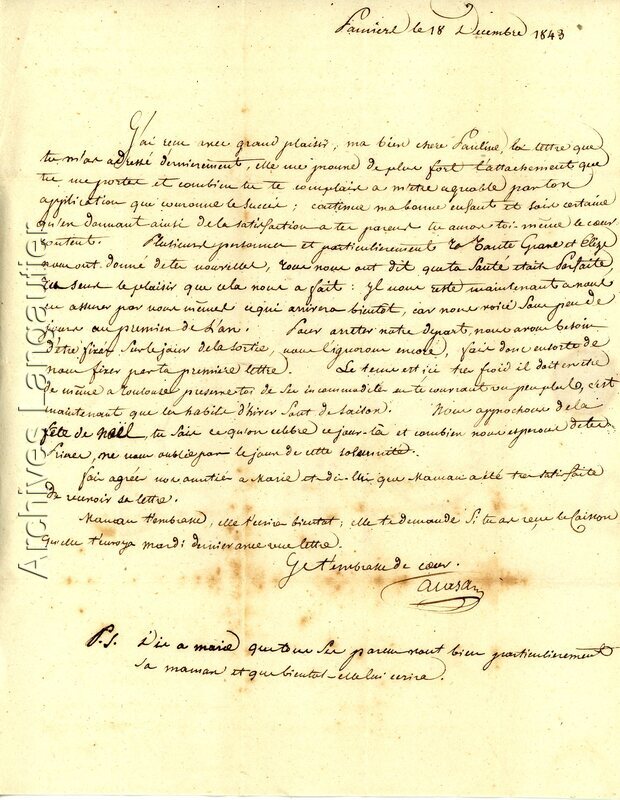 Pamiers le 18 Decembre 1843
J'ai recu avec grand plaisir, ma bien chere Pauline, la lettre que
tu m'as adressé dernierement, elle me prouve de plus fort l'attachement que
tu me portes et combien tu te complais a m'etre agreable par ton
application qui couronne le succès ; continue ma bonne enfant et sois certaine
qu'en donnant ainsi de la satisfaction a tes parens tu auras toi même le cœur
content. Plusieurs personnes et particulierement ta Tante et Elize
nous ont donné de tes nouvelles, tous nous ont dit que ta Santé était parfaite
tu sens le plaisir que cela nous a fait : Il nous reste maintenant a nous
en assurer par nous mêmes ce qui arrivera bientot, car nous voici sans peu de
jours au premier de l'an. Pour arreter notre depart, nous avons besoin
d'être fixés sur le jour de la sortie, nous l'ignorons encore, fais donc ensorte de
nous fixer par ta premiere lettre. Le tems est ici tres froid il doit en être
de même a Toulouse preserve toi de ses incommodités en te couvrant un peu plus, c'est
maintenant que les habits d'hiver sont de saison. Nous approchons de la
fête de noël, tu sais ce qu'on celebre ce jour-là et combien nous esperons de tes
Prieres, ne nous oublie pas le jour de cette solemnité.
fais agréer nos amitiés a Marie et dis-lui que Maman a été tres satisfaite
de recevoir sa lettre.
Maman t'embrasse, elle t'ecrira bientot ; elle te demande si tu as reçu le Caisson
qu'elle t'envoya mardi dernier avec une lettre.
Je t'embrasse de cœur.
P.S. Dis a marie que tous ses parens vont bien particulierement
sa maman et que bientot elle lui ecrira.
Archives Lanpautier